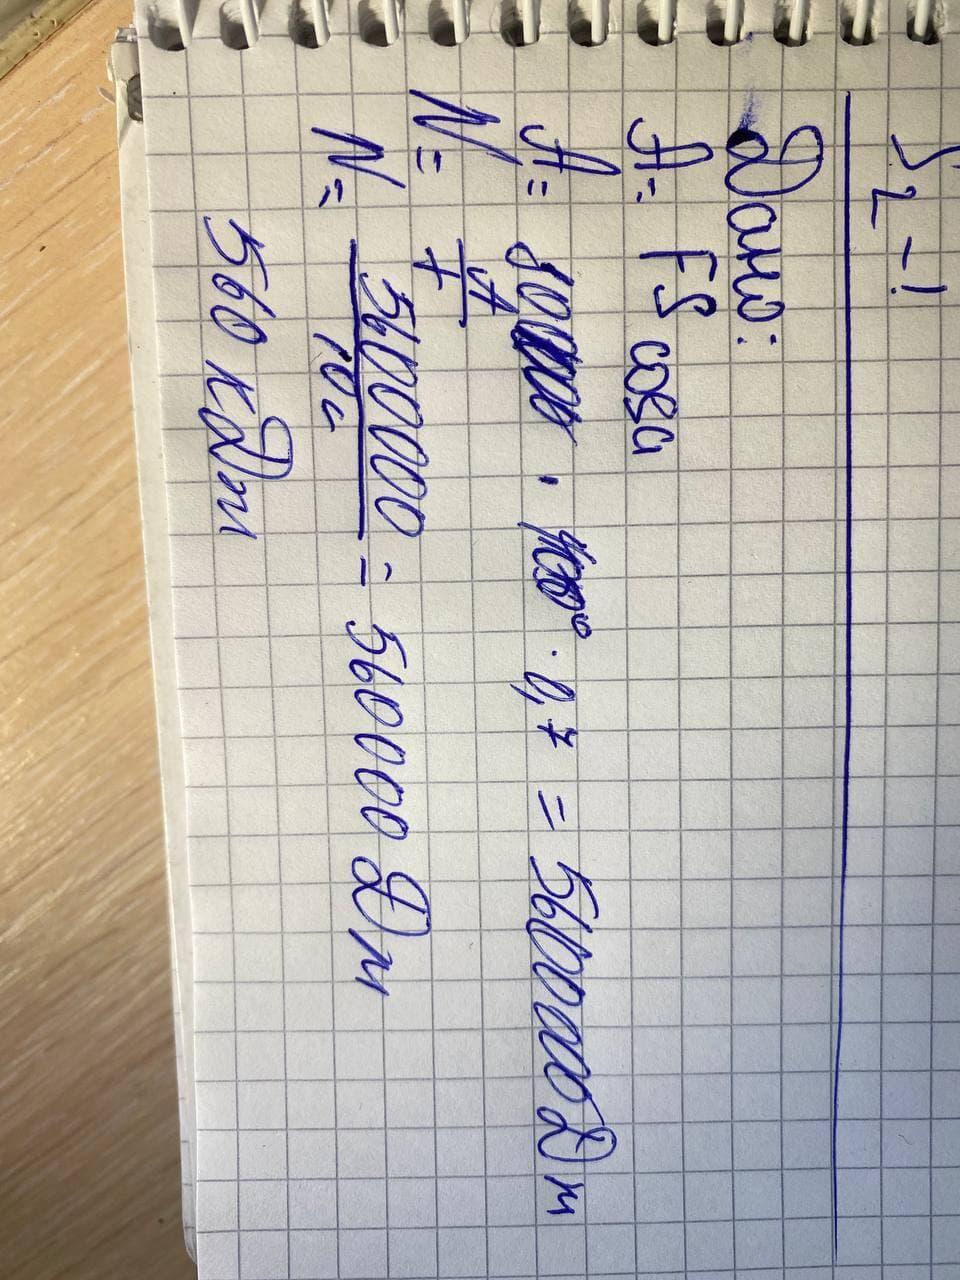 S₂ - !
Дано:
A = FS cosα
A = · 0,7 = 5600000 Дж
N = A/t
N = 5600000/10с = 560000 Дж
560 кДж